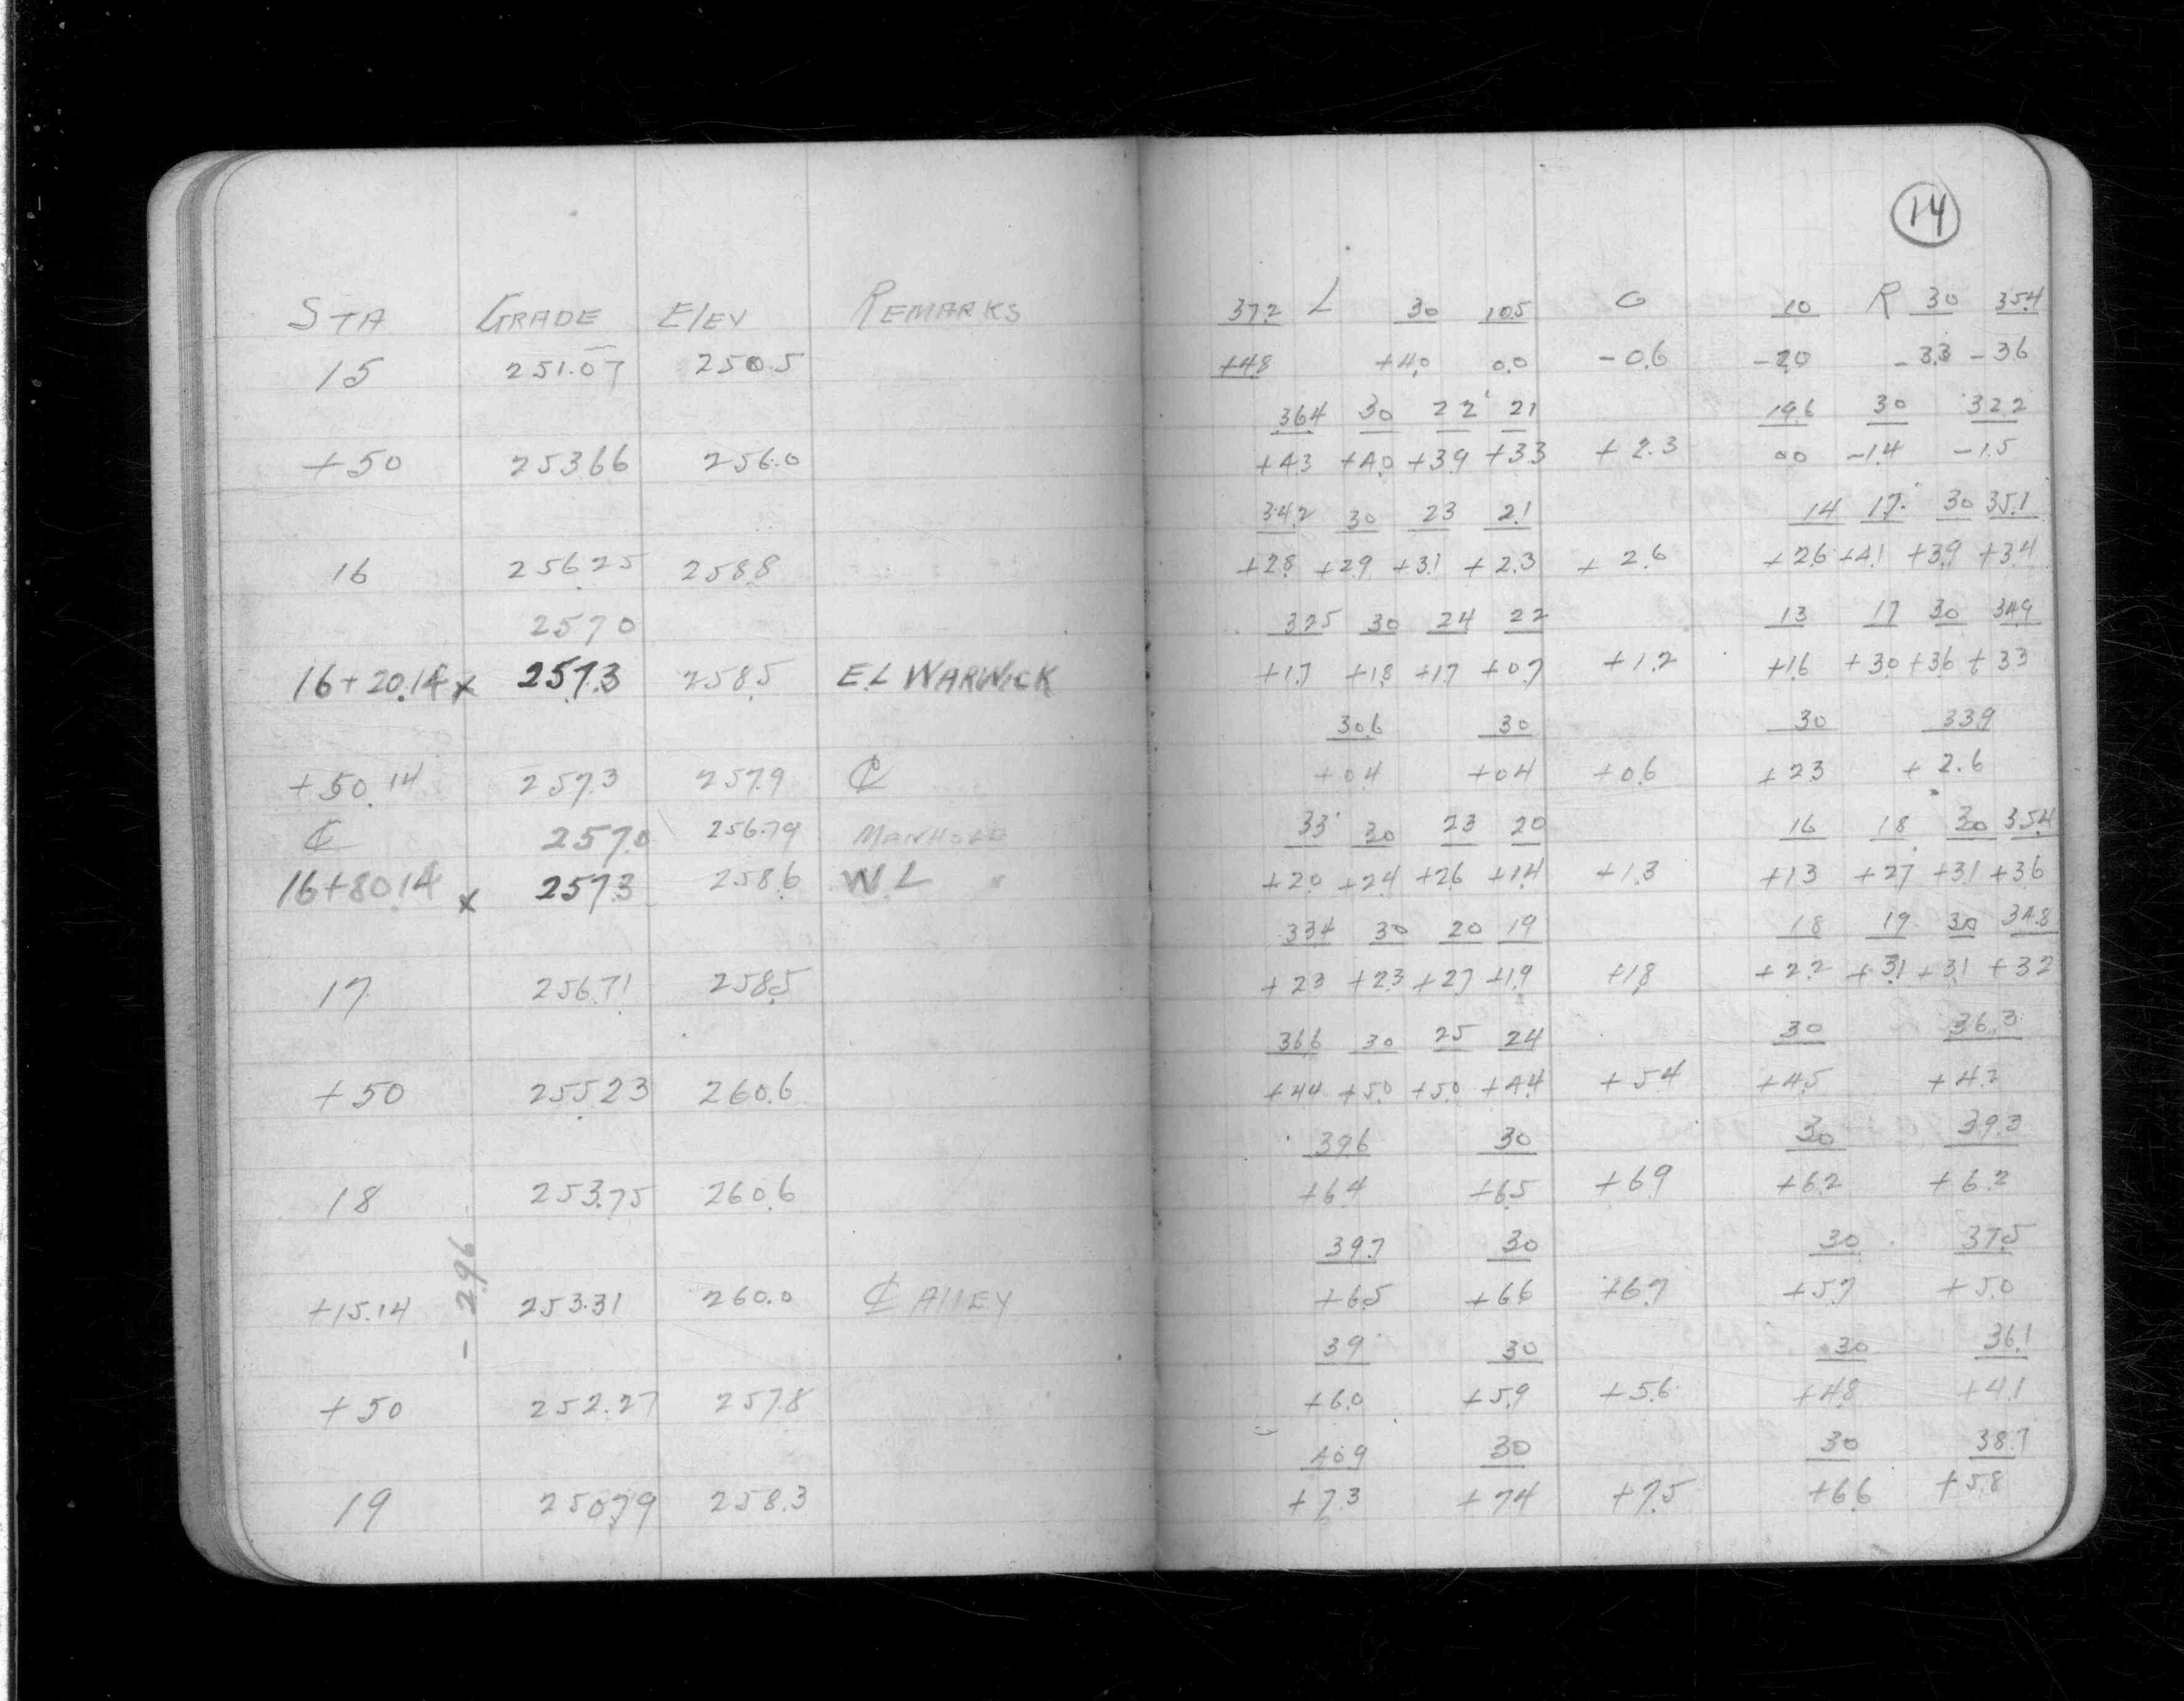 14
STA GRADE ELEV REMARKS 37.2 L 30 10.5 C 10 R 30 35.4
15 251.07 250.5 +4.8 +4.0 0.0 -0.6 -2.0 -3.3 -3.6
36.4 30 22 21 19.6 30 32.2
+50 253.66 256.0 +4.3 +4.0 +3.9 +3.3 +2.3 0.0 -1.4 -1.5
34.2 30 23 21 14 17 30 35.1
16 256.25 258.8 +2.8 +2.9 +3.1 +2.3 +2.6 +2.6 +4.1 +3.9 +3.4
257.0 32.5 30 24 22 13 17 30 34.9
16+20.14 x 257.3 258.5 E.L WARWICK +1.7 +1.8 +1.7 +0.7 +1.2 +1.6 +3.0 +3.6 +3.3
30.6 30 30 33.9
+50.14 257.3 257.9 ℄ +0.4 +0.4 +0.6 +2.3 +2.6
℄ 257.0 256.79 MANHOLE 33 30 23 20 16 18 30 35.4
16+80.14 x 257.3 258.6 W L " +2.0 +2.4 +2.6 +1.4 +1.3 +1.3 +2.7 +3.1 +3.6
33.4 30 20 19 18 19 30 34.8
17 256.71 258.5 +2.3 +2.3 +2.7 +1.9 +1.8 +2.2 +3.1 +3.1 +3.2
36.6 30 25 24 30 36.3
+50 255.23 260.6 +4.4 +5.0 +5.0 +4.4 +5.4 +4.5 +4.2
39.6 30 30 39.3
18 253.75 260.6 +6.4 +6.5 +6.9 +6.2 +6.2
- 2.96
39.7 30 30 37.5
+15.14 253.31 260.0 ℄ AllEY +6.5 +6.6 +6.7 +5.7 +5.0
39 30 30 36.1
+50 252.27 257.8 +6.0 +5.9 +5.6 +4.8 +4.1
40.9 30 30 38.7
19 250.79 258.3 +7.3 +7.4 +7.5 +6.6 +5.8